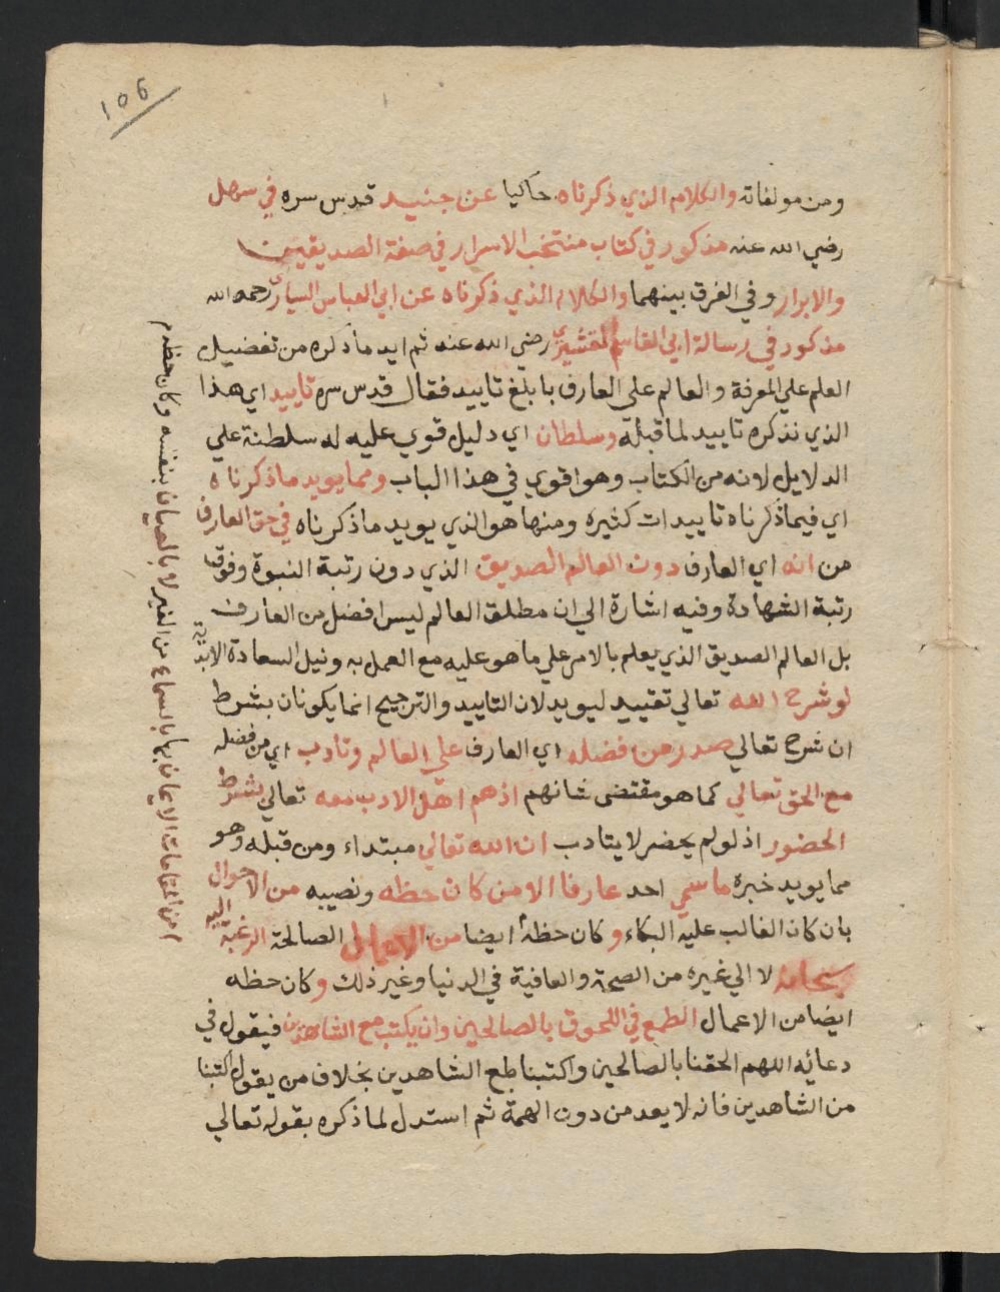 106
ومن مولفاته والكلام الذي ذكرناه حاكيا عن جنيد قدس سره في سهل
رضي الله عنه مذكور في كتاب منتخب الاسرار في صفة الصديقين
والابرار وفي الفرق بينهما والكلام الذي ذكرناه عن ابي العباس السياري رحمه الله
مذكور في رسالة ابي القاسم القشيري رضي الله عنه ثم ايد ما ذكره من تفضيل
العلم علي المعرفة والعالم علي العارف بابلغ تاييد فقال قدس سره تاييد اي هذا
الذي نذكره تاييد لما قبله وسلطان اي دليل قوي عليه له سلطنة علي
الدلايل لانه من الكتاب وهو اقوي في هذا الباب ومما يويد ما ذكرناه
اي فيما ذكرناه تاييدات كثيره ومنها هو الذي يويد ما ذكرناه في حق العارف
من انه اي العارف دون العالم الصديق الذي دون رتبة النبوة وفوق
رتبة الشهادة وفيه اشارة الي ان مطلق العالم ليس افضل من العارف
بل العالم الصديق الذي يعلم بالامر علي ما هو عليه مع العمل به ونيل السعادة الابدية
لو شرح الله تعالي تقييد ليويد لان التاييد والترجيح انما يكونان بشرط
ان شرح تعالي صدر من فضله اي العارف علي العالم وتادب اي من فضله
مع الحق تعالي كما هو مقتضي شانهم اذ هم اهل الادب معه تعالي بشرط
الحضور اذ لو لم يحضر لا يتادب ان الله تعالي مبتداء ومن قبله وهو
مما يويد خبره ما سمي احد عارفا الا من كان حظه ونصيبه من الاحوال
بان كان الغالب عليه البكاء وكان حظه ايضا من الاعمال الصالحة الرغبة اليه
سبحانه لا الي غيره من الصحة والعافية في الدنيا وغير ذلك وكان حظه
ايضا من الاعمال الطمع في اللحوق بالصالحين وان يكتب مع الشاهدين فيقول في
دعائه اللهم الحقنا بالصالحين واكتبنا مع الشاهدين بخلاف من يقول اكتبنا
من الشاهدين فانه لا يعد من دون الهمة ثم استدل لما ذكره بقوله تعالي
من المقامات الايمان بها بالسماع من الغير لا بالعيان بنفسه وكان حظه